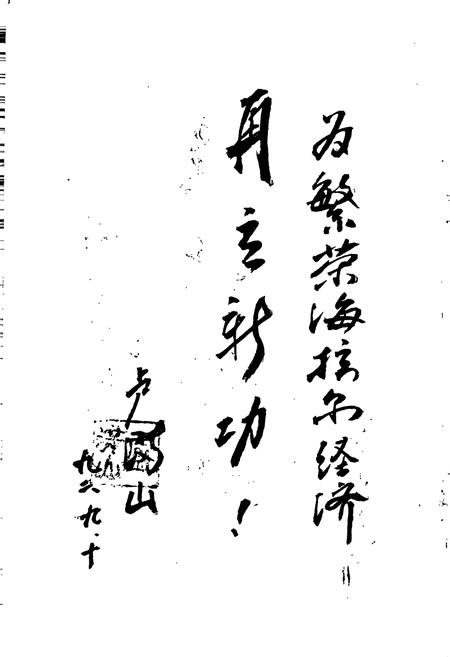 为繁荣海拉尔经济
再立新功!
九六.九.十